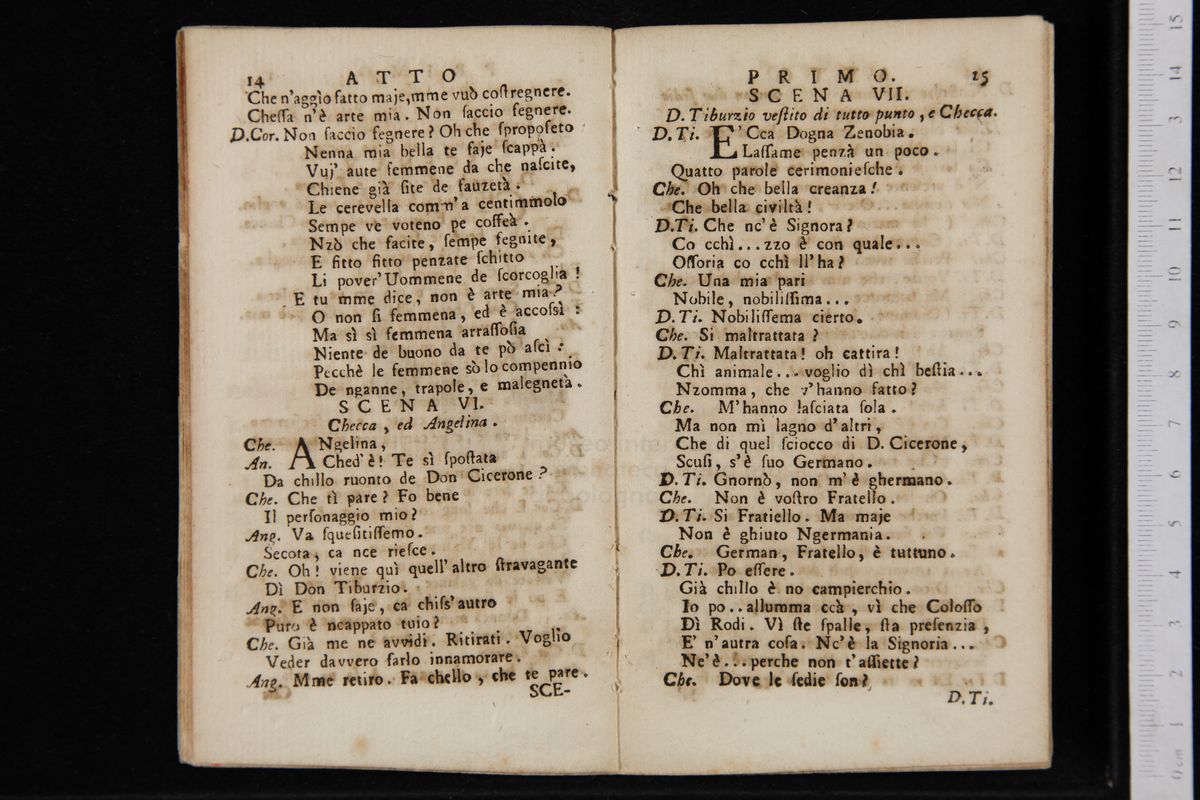 14 ATTO
Che n'aggio fatto maje, mme vuò coſtregnere.
Cheſſa n'è arte mia. Non ſaccio fegnere.
D.Cor. Non ſaccio fegnere? Oh che ſpropoſeto
Nenna mia bella te ſaje ſcappà.
Vuj' aute femmene da che naſcite,
Chiene già ſite de fauzetà.
Le cerevella comm'a centimmolo
Sempe ve voteno pe coffeà.
Nzò che facite, ſempe fegnite,
E fitto fitto penzate ſchitto
Li pover'Uommene de ſcorcoglia!
E tu mme dice, non è arte mia?
O non ſi femmena, ed è accoſsì:
Ma sì sì femmena arraſſoſia
Niente de buono da te pò aſcì:
Pecchè le femmene sò lo compennio
De nganne, trapole, e malegnetà.
SCENA VI.
Checca, ed Angelina.
Che. ANgelina,
An. Ched'è! Te sì ſpoſtata
Da chillo ruonto de Don Cicerone?
Che. Che tì pare? Fo bene
Il perſonaggio mio?
Ang. Va ſqueſitiſſemo.
Secota, ca nce rieſce.
Che. Oh! viene quì quell'altro ſtravagante
Dì Don Tiburzio.
Ang. E non ſaje, ca chiſs'autro
Puro è ncappato tuio?
Che. Già me ne avvidi. Ritirati. Voglio
Veder davvero farlo innamorare.
Ang. Mme retiro. Fa chello, che te pare.
SCE-
PRIMO. 15
SCENA VII.
D. Tiburzio veſtito di tutto punto, e Checca.
D. Ti. E'Cca Dogna Zenobia.
Laſſame penzà un poco.
Quatto parole cerimonieſche.
Che. Oh che bella creanza!
Che bella civiltà!
D.Ti. Che nc'è Signora?
Co cchì...zzo è con quale...
Oſſoria co cchì ll'ha?
Che. Una mia pari
Nobile, nobiliſſima...
D. Ti. Nobiliſſema cierto.
Che. Si maltrattata?
D. Ti. Maltrattata! oh cattira!
Chì animale... voglio dì chì beſtia...
Nzomma, che v'hanno fatto?
Che. M'hanno laſciata ſola.
Ma non mì lagno d'altri,
Che di quel ſciocco di D. Cicerone,
Scuſi, s'è ſuo Germano.
D. Ti. Gnornò, non m'è ghermano.
Che. Non è voſtro Fratello.
D. Ti. Si Fratiello. Ma maje
Non è ghiuto Ngermania.
Che. German, Fratello, è tuttuno.
D. Ti. Po eſſere.
Già chillo è no campierchio.
Io po..allumma ccà, vì che Coloſſo
Dì Rodi. Vì ſte ſpalle, ſta preſenzia,
E' n'autra coſa. Nc'è la Signoria...
Ne'è...perche non t'aſſiette?
Che. Dove le ſedie ſon?
D. Ti.